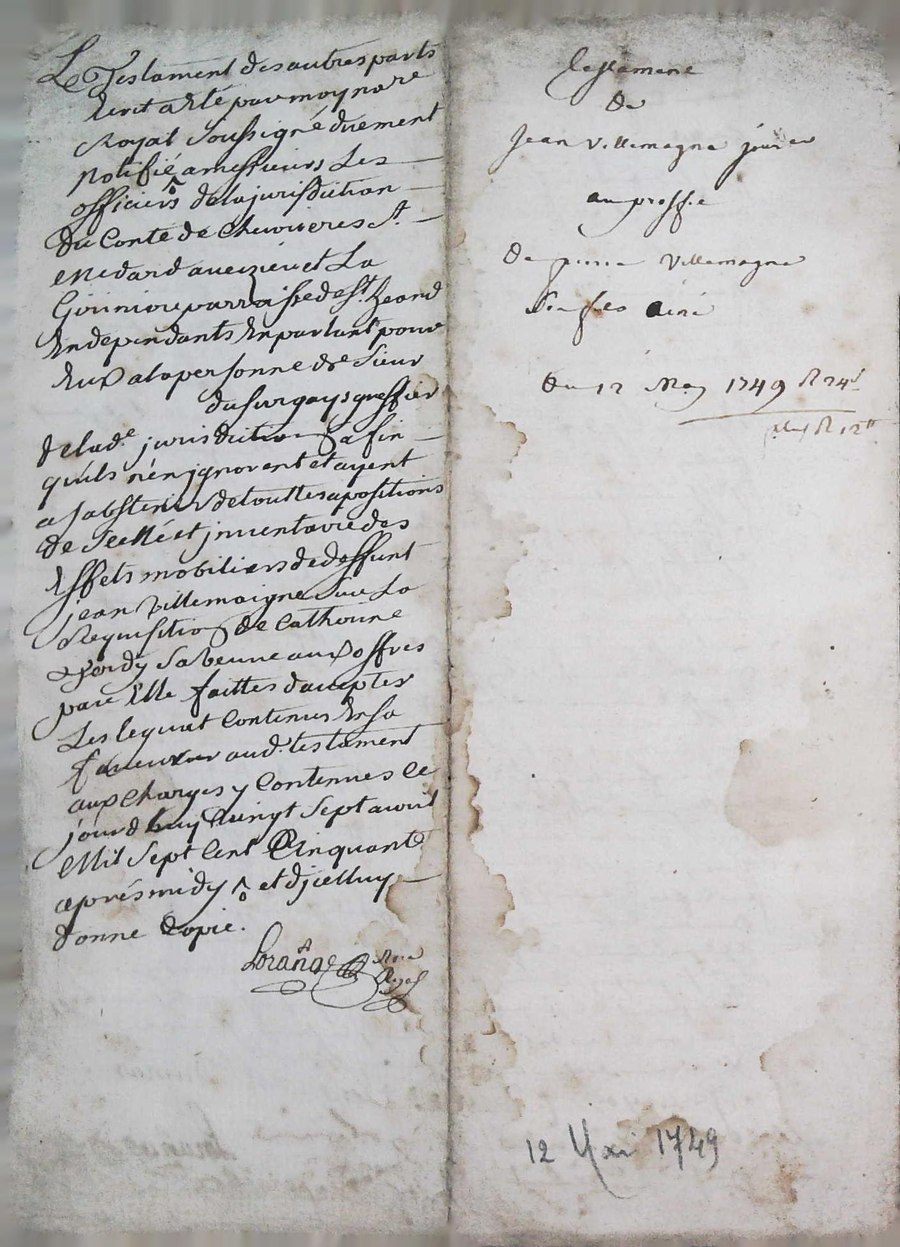 Le Testament des autres parts
Ecrit a été par moy nore
Royal soussigné duement
notifié a messieurs Les
officiers de la jurisdiction
du Conté de Chevrieres St
medard aveizieu et La
Gimniore parroisse de St heand
Independants En parlant pour
Eux a la personne de Sieur
dusurgays greffier
de lade jurisdiction afin
quils n'en jgnorent et ayent
a sabstenir de touttes apositions
de scellé et jnventaire des
Effets mobiliers de deffunt
jean Villemaigne sur La
Requisition de Catherine
sa veuve aux offres
par Elle faittes daccepter
Les leguat Contenus En sa
faveur aud. testament
aux charges y Contenues Ce
jourdhuy vingt sept avril
Mil Sept Cent Cinquante
aprés midy et djcelluy
donné Copie.
Nore
Royal
Testament
De
Jean Villemagne
au proffit
De pierre Villemagne
Son fils ainé
Du 12 May 1749
12 Mai 1749